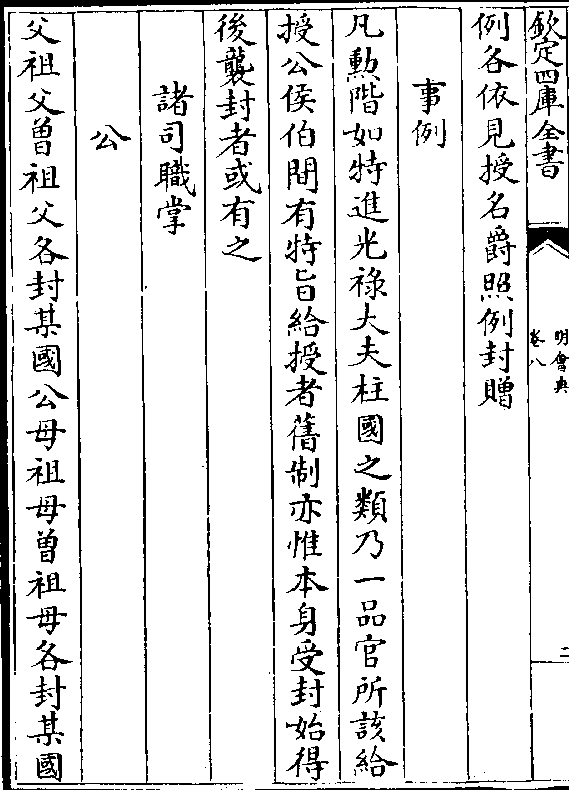 欽定四庫全書
明會典
卷八
二
例各依見授名爵照例封贈
事例
凡勲階如特進光祿大夫柱國之類乃一品官所該給
授公侯伯間有特旨給授者舊制亦惟本身受封始得
後襲封者或有之
諸司職掌
公
父祖父曽祖父各封某國公母祖母曽祖母各封某國